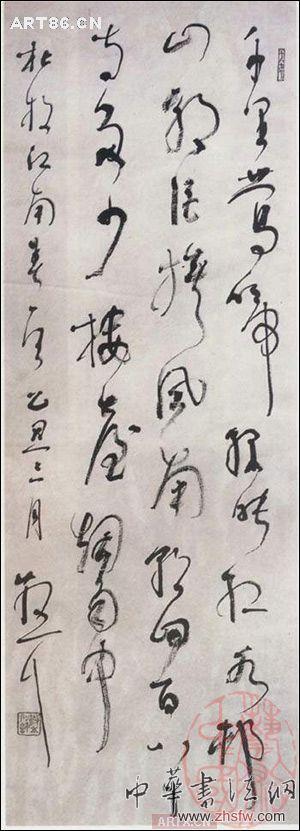 ART86.CN
千里鶯啼綠映紅水村
山郭酒旗風南朝四百八
寺多少樓臺烟雨中
杜牧江南春一首 乙丑三月
中華書法網
www.zhsfw.com